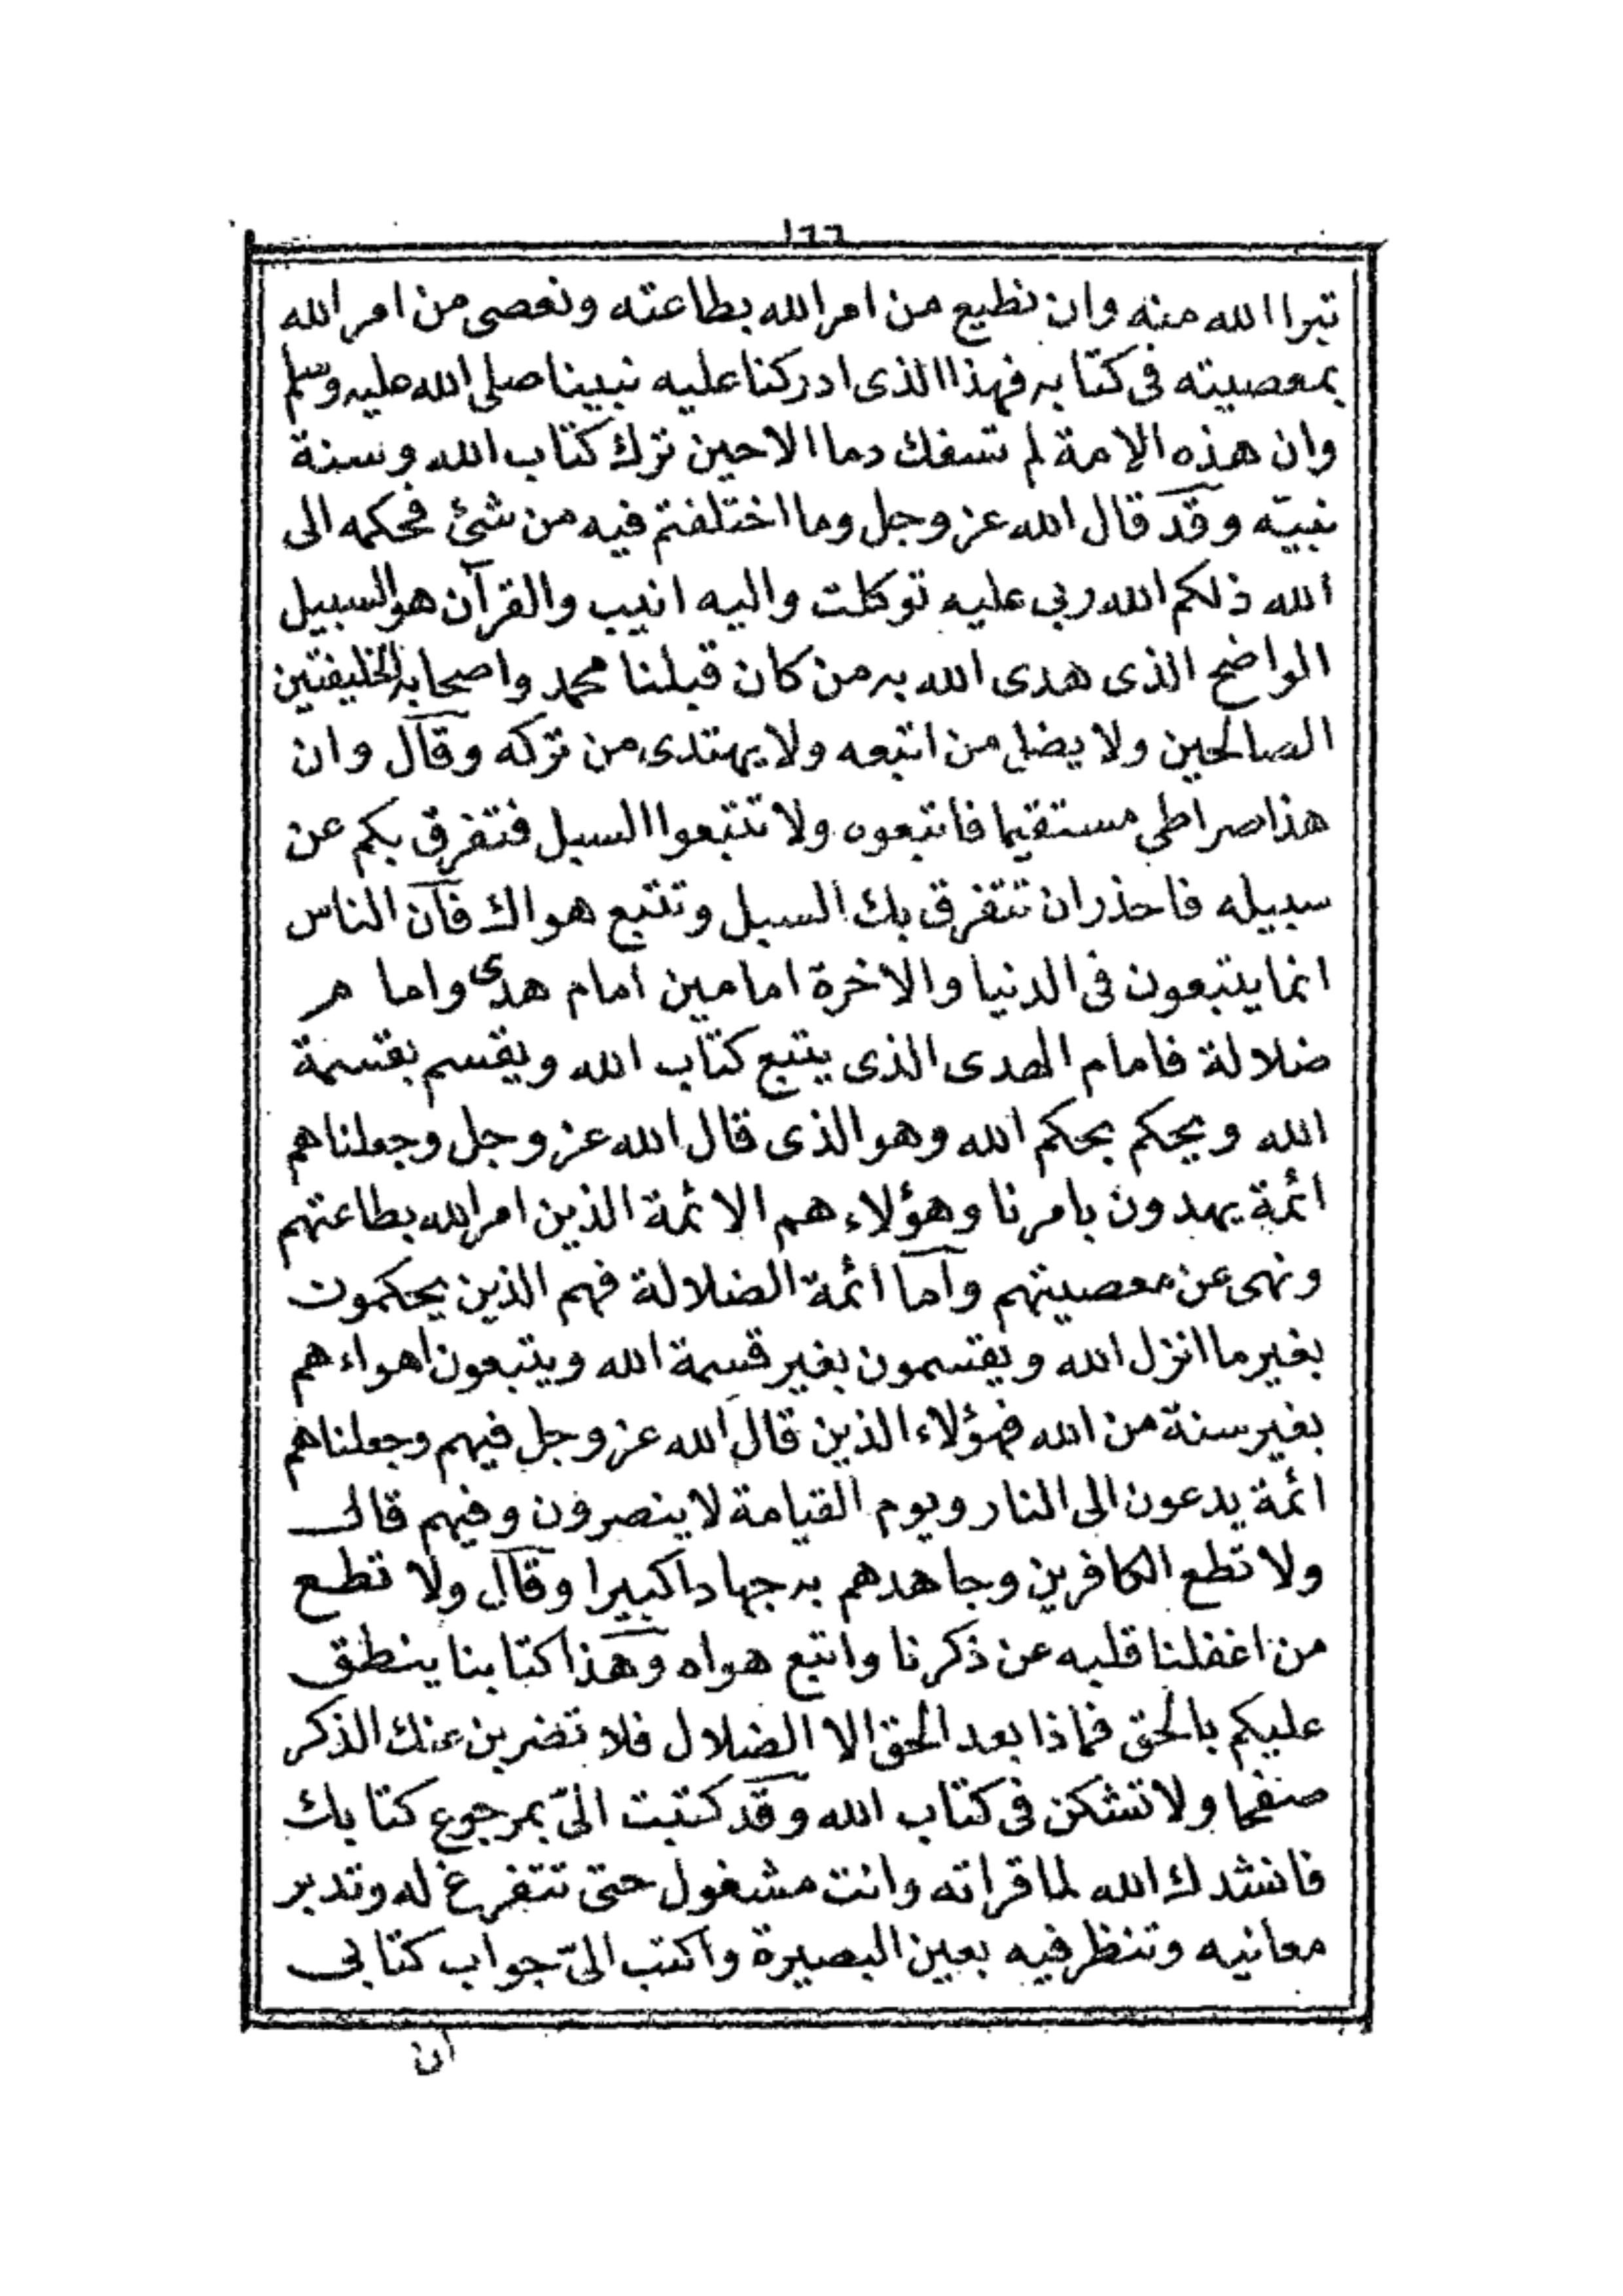 ١٦٦
تبرا الله منه وان نطيع من امر الله بطاعته ونعصى من امر الله
بمعصيته فى كتابه فهذا الذى ادركنا عليه نبينا صلى الله عليه وسلم
وان هذه الامة لم تسفك دما الاحين ترك كتاب الله وسنة
نبيّه وقد قال الله عز وجل وما اختلفتم فيه من شئ فحكمه الى
الله ذلكم الله ربى عليه توكلت واليه انيب والقرآن هو السبيل
الواضح الذى هدى الله به من كان قبلنا محمد واصحابه الخليفتين
الصالحين ولا يضل من اتبعه ولا يهتدى من تركه وقال وان
هذا صراطى مستقيما فاتبعوه ولا تتبعوا السبل فتفرق بكم عن
سبيله فاحذر ان تتفرق بك السبل وتتبع هواك فان الناس
انما يتبعون فى الدنيا والاخرة امامين امام هدى واما م
ضلالة فامام الهدى الذى يتبع كتاب الله ويقسم بقسمة
الله ويحكم بحكم الله وهو الذى قال الله عز وجل وجعلناهم
ائمة يهدون بامرنا وهؤلاء هم الائمة الذين امر الله بطاعتهم
ونهى عن معصيتهم واما ائمة الضلالة فهم الذين يحكمون
بغير ما انزل الله ويقتسمون بغير قسمة الله ويتبعون اهواءهم
بغير سنة من الله فهؤلاء الذين قال الله عز وجل فيهم وجعلناهم
ائمة يدعون الى النار ويوم القيامة لا ينصرون وفيهم قال
ولا تطع الكافرين وجاهدهم به جهادا كبيرا وقال ولا تطع
من اغفلنا قلبه عن ذكرنا واتبع هواه وهذا كتابنا ينطق
عليكم بالحق فماذا بعد الحق الا الضلال فلا تضربن عنك الذكر
صفحا ولا تشكن فى كتاب الله وقد كتبت الىّ بمرجوع كتابك
فانشدك الله لما قراته وانت مشغول حتى تتفرغ له وتدبر
معانيه وتنظر فيه بعين البصيرة واكتب الىّ جواب كتابى
ان